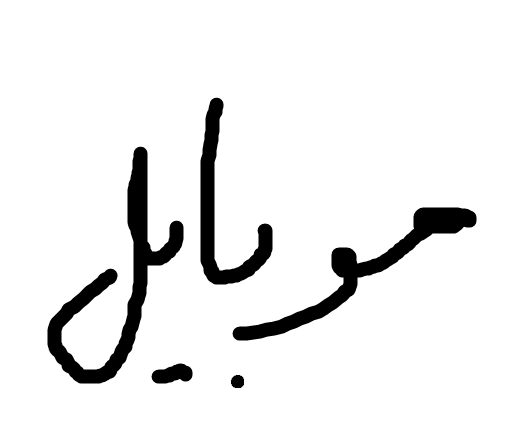 موبایل